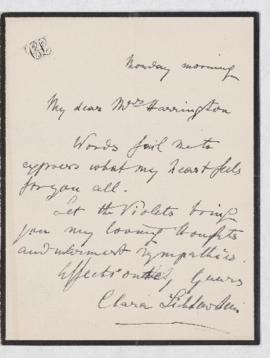 Monday morning
My dear Mrs Harrington
Words fail me to
express what my heart feels
for you all.
Let the Violets bring
you my loving thoughts
and warmest sympathies.
Affectionately Yours
Clara